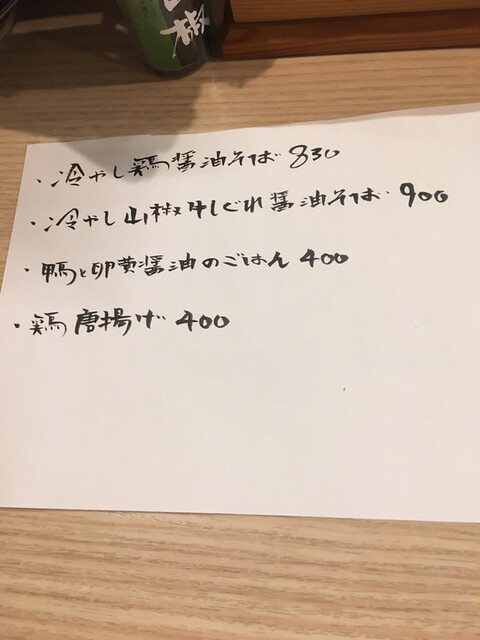 椒
・冷やし鶏醤油そば 830
・冷やし山椒牛しぐれ醤油そば 900
・鴨と卵黄醤油のごはん 400
・鶏唐揚げ 400